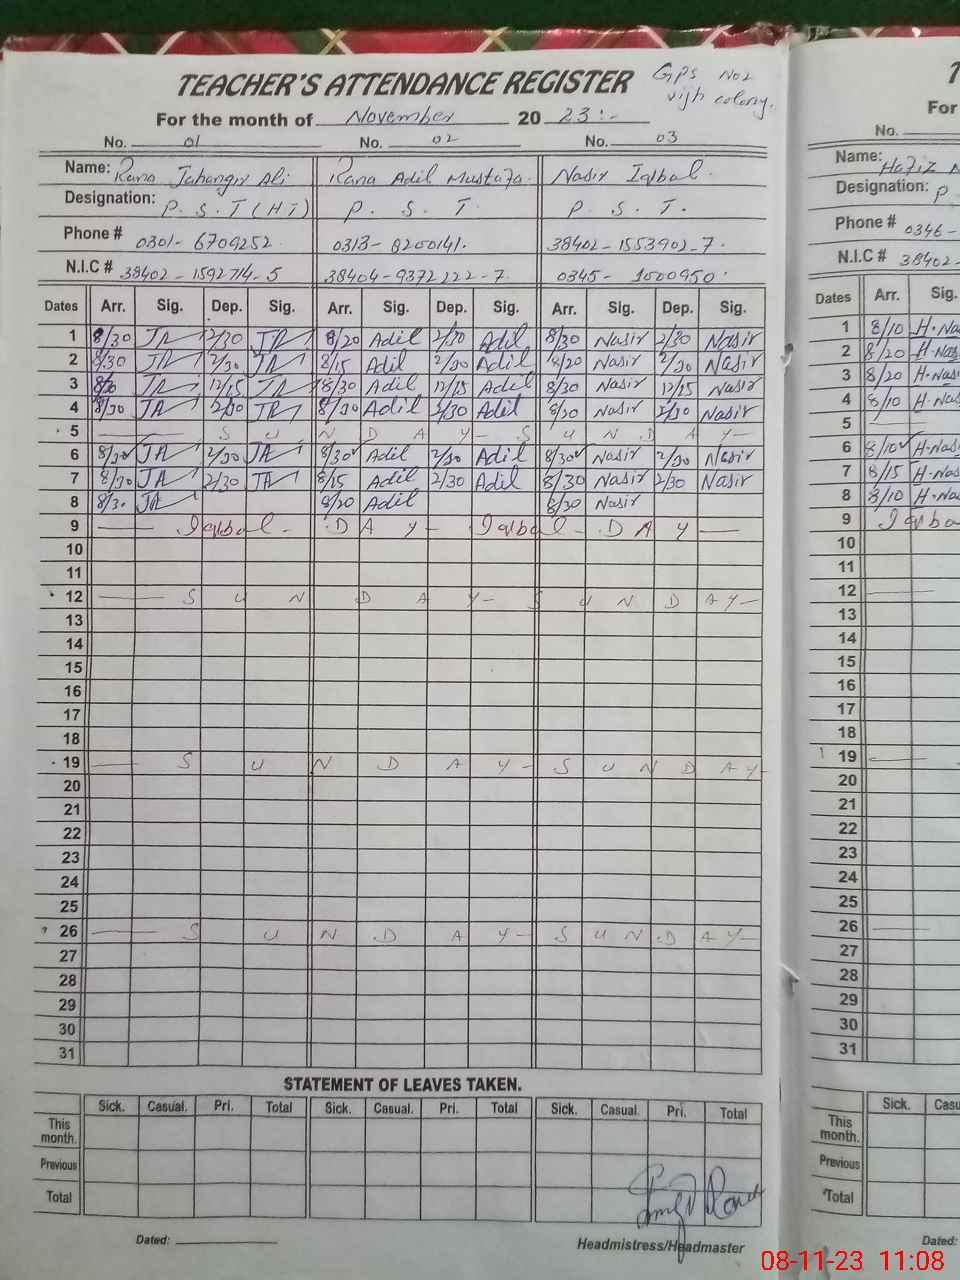 TEACHER'S ATTENDANCE REGISTER
GPS No2
vijh colony.
For the month of November 20 23:-
No. 01 No. 02 No. 03
Name: Rana Jahangir Ali Rana Adil Mustafa. Nasir Iqbal.
Designation: P. S. T (HT) P. S. T. P. S. T.
Phone # 0301-6709252. 0313-8200141. 38402-1553902-7.
N.I.C # 38402-1592714-5 38404-9372122-7. 0345-1000950.
Dates Arr. Sig. Dep. Sig. Arr. Sig. Dep. Sig. Arr. Sig. Dep. Sig.
1 8/30 JA 2/30 JA 8/20 Adil 2/30 Adil 8/30 Nasir 2/30 Nasir
2 8/30 JA 2/30 JA 8/15 Adil 2/30 Adil 8/20 Nasir 2/30 Nasir
3 JA 12/15 JA 8/30 Adil 12/15 Adil 8/30 Nasir 12/15 Nasir
4 8/30 JA 2/30 JA 8/30 Adil 2/30 Adil 8/30 Nasir 2/30 Nasir
5 — S U N D A Y - S U N D A Y —
6 8/30 JA 2/30 JA 8/30 Adil 2/30 Adil 8/30 Nasir 2/30 Nasir
7 8/30 JA 2/30 JA 8/15 Adil 2/30 Adil 8/30 Nasir 2/30 Nasir
8 8/30 JA 8/20 Adil 8/30 Nasir
9 — Iqbal - D A Y - Iqbal - D A Y —
10
11
12 — S U N D A Y - S U N D A Y -
13
14
15
16
17
18
19 — S U N D A Y - S U N D A Y -
20
21
22
23
24
25
26 — S U N D A Y - S U N D A Y -
27
28
29
30
31
STATEMENT OF LEAVES TAKEN.
Sick. Casual. Pri. Total Sick. Casual. Pri. Total Sick. Casual. Pri. Total
This month.
Previous
Total
Dated:
Headmistress/Headmaster
For
No.
Name: Hafiz
Designation: P
Phone # 0346-
N.I.C # 38402-
Dates Arr. Sig.
1 8/10 H.Nas
2 8/20 H.Nas
3 8/20 H.Nas
4 8/10 H.Nas
5 —
6 8/10 H.Nas
7 8/15 H.Nas
8 8/10 H.Nas
9 Iqba
10
11
12 —
13
14
15
16
17
18
19 —
20
21
22
23
24
25
26 —
27
28
29
30
31
Sick. Casu
This month.
Previous
Total
Dated:
08-11-23 11:08